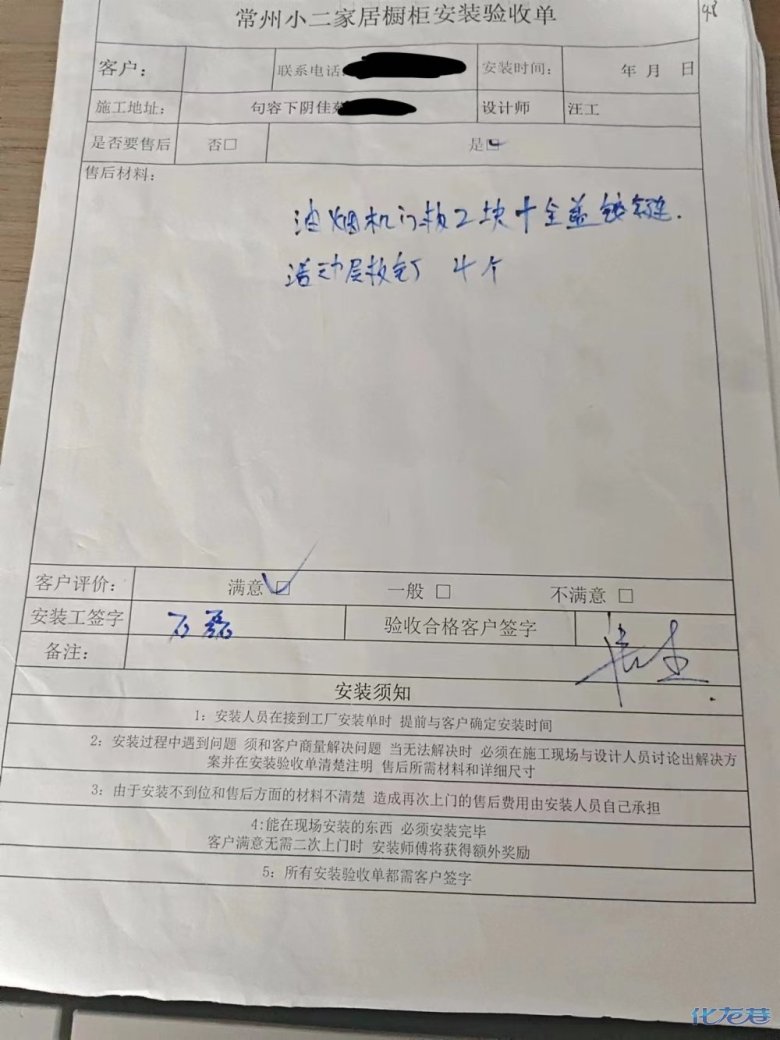 常州小二家居橱柜安装验收单
48
客户：
联系电话:
安装时间：
年 月 日
施工地址：
句容下阴佳
设计师
汪工
是否要售后
否□
是☑
售后材料：
油烟机门板2块+全盖铰链.
活动层板钉 4个
客户评价：
满意 ☑
一般 □
不满意 □
安装工签字
石磊
验收合格客户签字
备注：
安装须知
1：安装人员在接到工厂安装单时 提前与客户确定安装时间
2：安装过程中遇到问题 须和客户商量解决问题 当无法解决时 必须在施工现场与设计人员讨论出解决方
案并在安装验收单清楚注明 售后所需材料和详细尺寸
3：由于安装不到位和售后方面的材料不清楚 造成再次上门的售后费用由安装人员自己承担
4:能在现场安装的东西 必须安装完毕
客户满意无需二次上门时 安装师傅将获得额外奖励
5：所有安装验收单都需客户签字
化龙巷